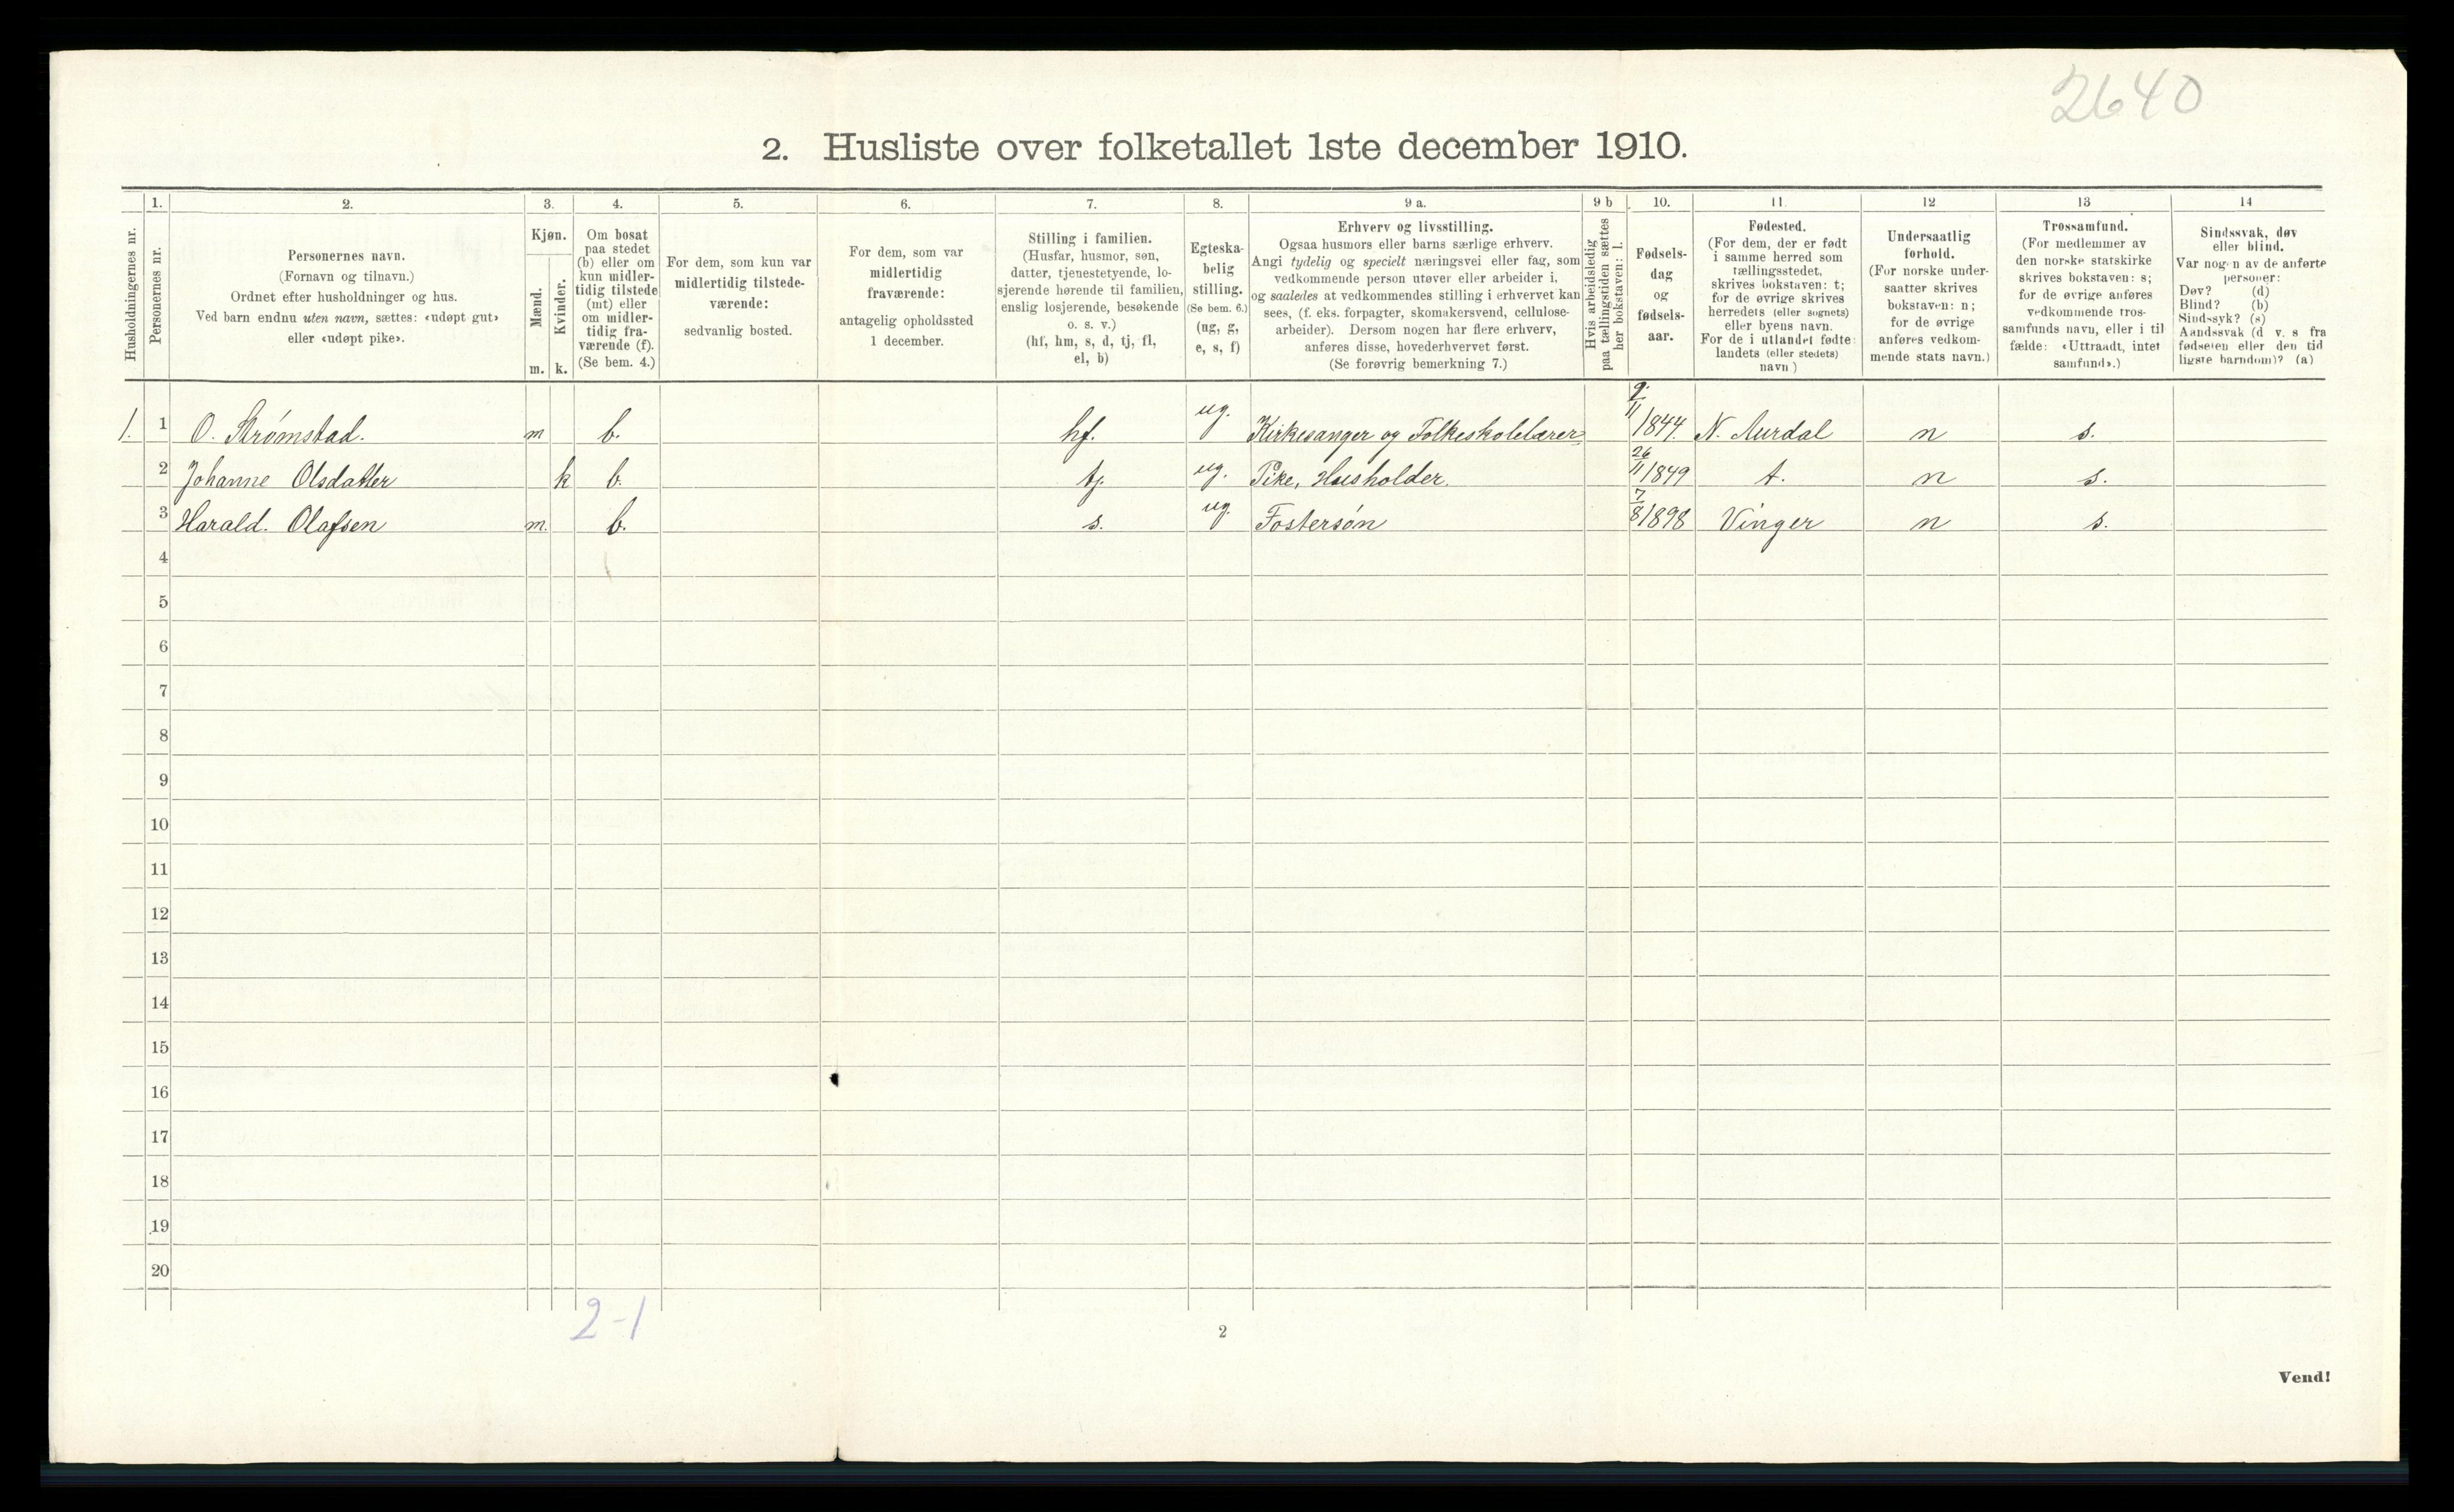 2640
2. Husliste over folketallet 1ste december 1910.
Husholdningernes nr.
1. 2. 3. 4. 5. 6. 7. 8. 9 a. 9 b 10. 11. 12 13 14
Personernes nr.
Personernes navn.
(Fornavn og tilnavn.)
Ordnet efter husholdninger og hus.
Ved barn endnu uten navn, sættes: «udøpt gut»
eller «udøpt pike».
Kjøn.
Mænd.
Kvinder.
m. k.
Om bosat
paa stedet
(b) eller om
kun midler-
tidig tilstede
(mt) eller
om midler-
tidig fra-
værende (f).
(Se bem. 4.)
For dem, som kun var
midlertidig tilstede-
værende:
sedvanlig bosted.
For dem, som var
midlertidig
fraværende:
antagelig opholdssted
1 december.
Stilling i familien.
(Husfar, husmor, søn,
datter, tjenestetyende, lo-
sjerende hørende til familien,
enslig losjerende, besøkende
o. s. v.)
(hf, hm, s, d, tj, fl,
el, b)
Egteska-
belig
stilling.
(Se bem. 6.)
(ug, g,
e, s, f)
Erhverv og livsstilling.
Ogsaa husmors eller barns særlige erhverv.
Angi tydelig og specielt næringsvei eller fag, som
vedkommende person utøver eller arbeider i,
og saaledes at vedkommendes stilling i erhvervet kan
sees, (f. eks. forpagter, skomakersvend, cellulose-
arbeider). Dersom nogen har flere erhverv,
anføres disse, hovederhvervet først.
(Se forøvrig bemerkning 7.)
Hvis arbeidsledig
paa tællingstiden sættes
her bokstaven: l.
Fødsels-
dag
og
fødsels-
aar.
Fødested.
(For dem, der er født
i samme herred som
tællingsstedet,
skrives bokstaven: t;
for de øvrige skrives
herredets (eller sognets)
eller byens navn.
For de i utlandet fødte:
landets (eller stedets)
navn)
Undersaatlig
forhold.
(For norske under-
saatter skrives
bokstaven: n;
for de øvrige
anføres vedkom-
mende stats navn.)
Trossamfund.
(For medlemmer av
den norske statskirke
skrives bokstaven: s;
for de øvrige anføres
vedkommende tros-
samfunds navn, eller i til
fælde: «Uttraadt, intet
samfund».)
Sindssvak, døv
eller blind.
Var nogen av de anførte
personer:
Døv? (d)
Blind? (b)
Sindssyk? (s)
Aandssvak (d v. s fra
fødselen eller den tid
ligste barndom)? (a)
1. 1 O. Strømstad. m b. hf. ug. Kirkesanger og Folkeskolelærer 9/11 1844. N. Aurdal n s.
2 Johanne Olsdatter k b. tj. ug. Pike, Husholder. 26/11 1849 t. n s.
3 Harald. Olafsen m. b. s. ug. Fostersøn 7/8 1898 Vinger n s.
4
5
6
7
8
9
10
11
12
13
14
15
16
17
18
19
20
2-1
2
Vend!